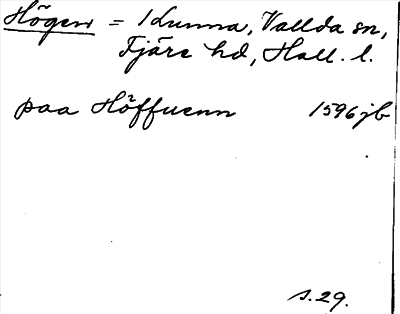 Högen = 1 Lunna, Vallda sn,
Fjäre hd, Hall. l.
paa Höffuenn 1596 jb
s. 29.